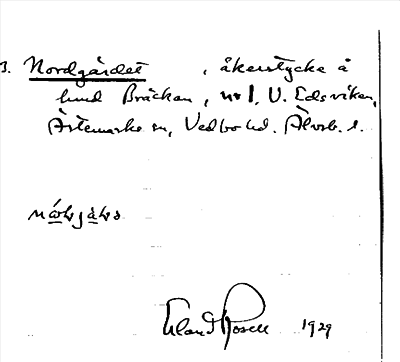 3. Nordgärdet , åkerstycke å
hmd Bräckan, nr 1, V. Edsviken,
Ärtemarks sn, Vedbo hd. Älvsb. l.
Erland Rosell 1929